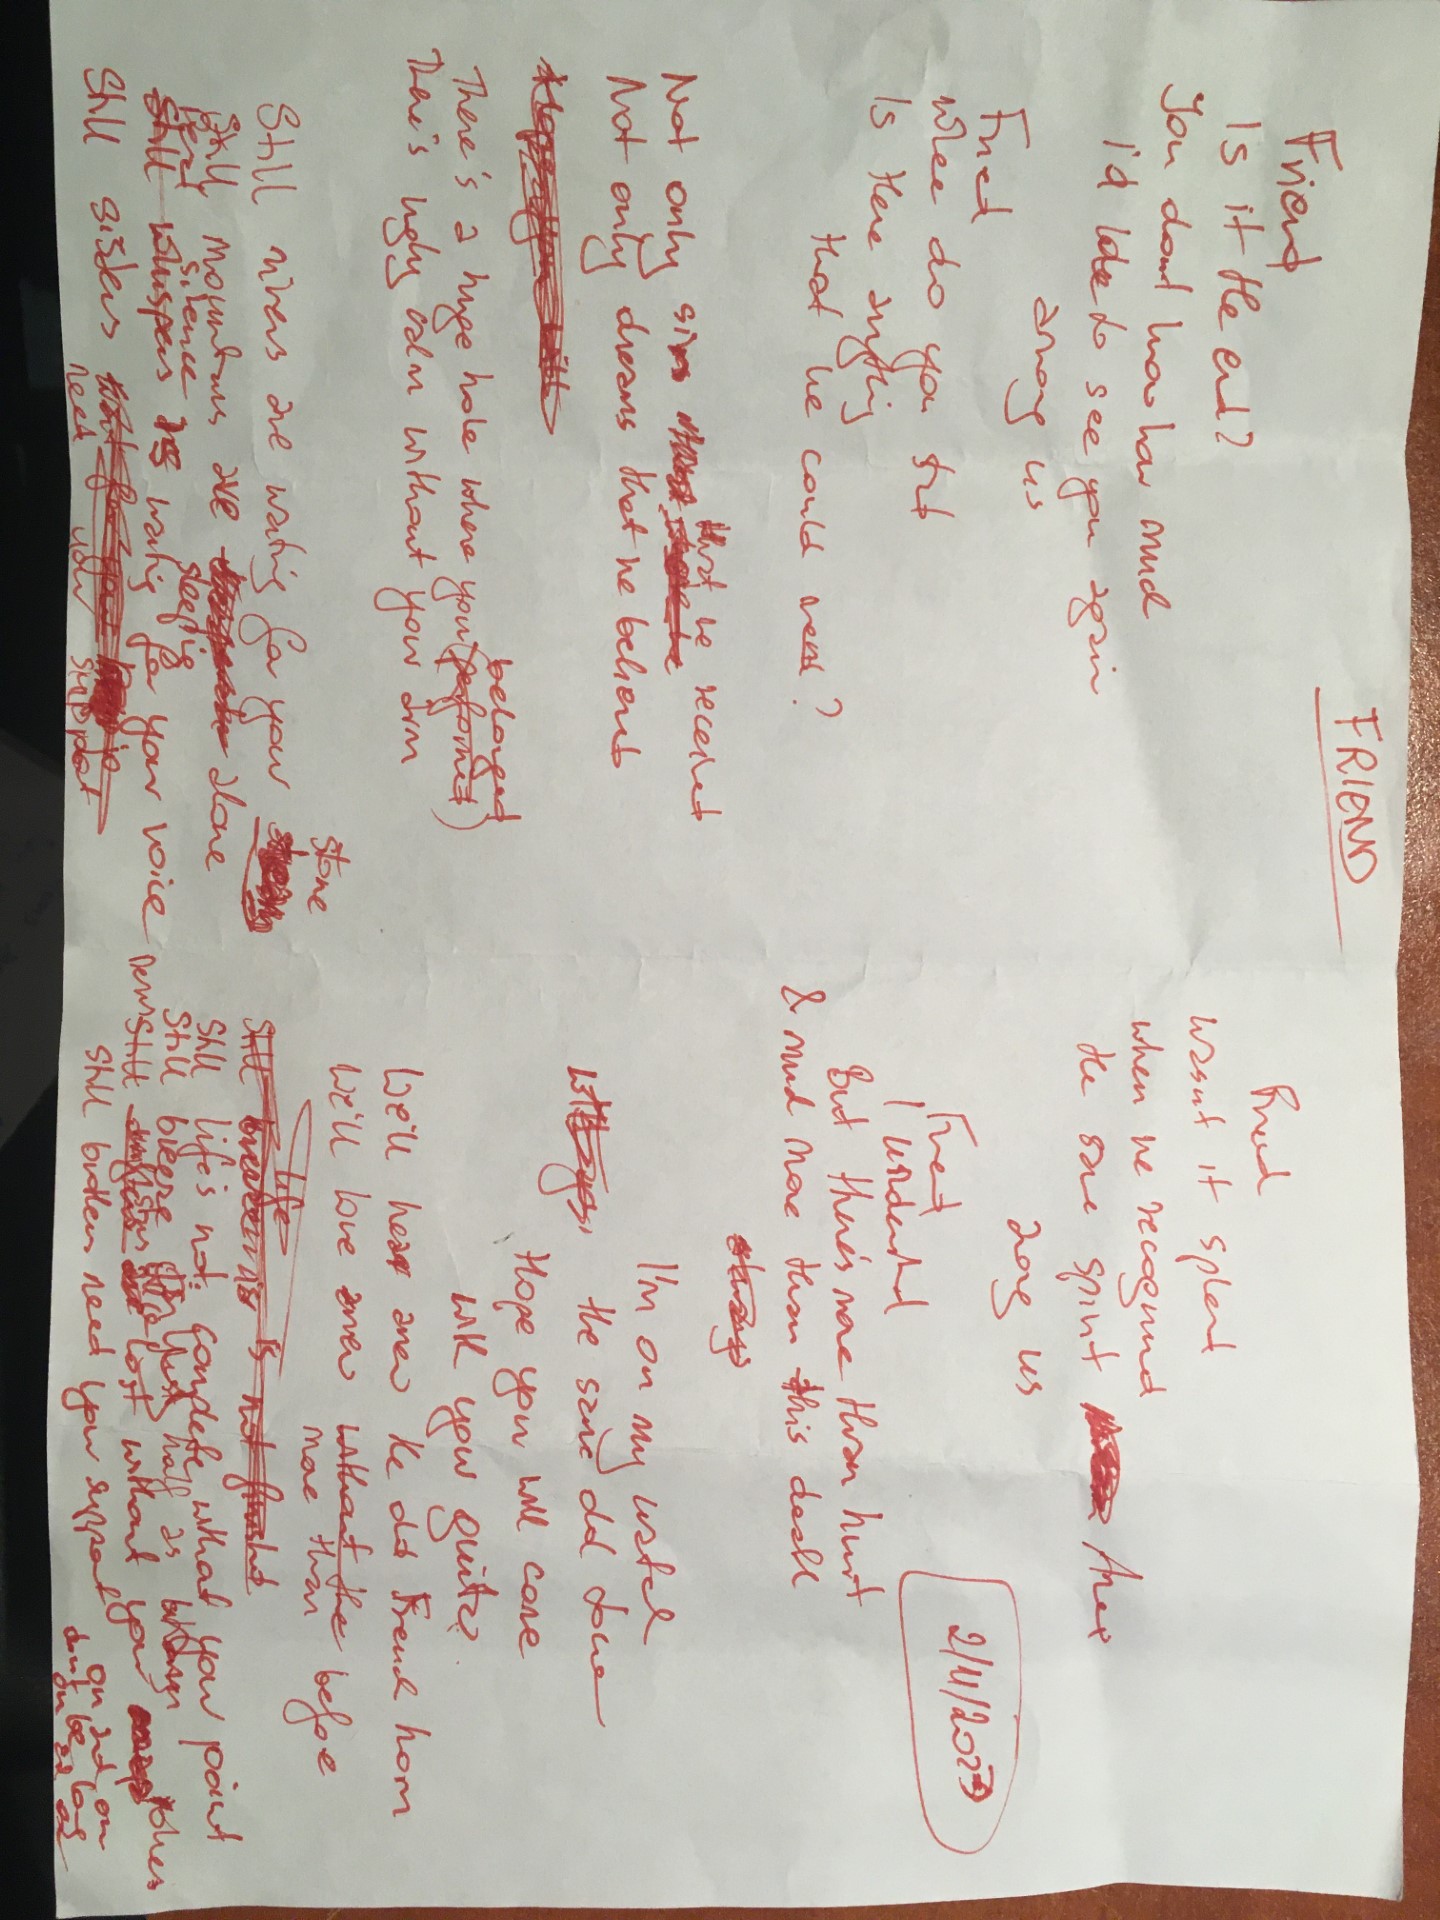 FRIEND
Friend
Is it the end?
You don't know how much
I'd like to see you again
among us
Friend
Where do you
Is there anything
that we could need?
Not only sins that we received
Not only dreams that we believed
There's a huge hole where you (performed) belonged
There's ugly calm without your
Still rivers are waiting for your stone
Still mountains are sleeping alone
silence is waiting for your voice
Still sisters need your support
Friend
wasn't it splend
when we recognized
the same spirit
among us
2/11/2023
Friend
I understand
But there's more than hurt
& much more than this death
I'm on my watch
the same old
Hope you will come
with your guitar
We'll hear anew the old French horn
We'll love anew
more than before
life
Still life's not complete without your point
Still half as
Still lost without your
Still brothers need your support
on and on
don't be long
on and on